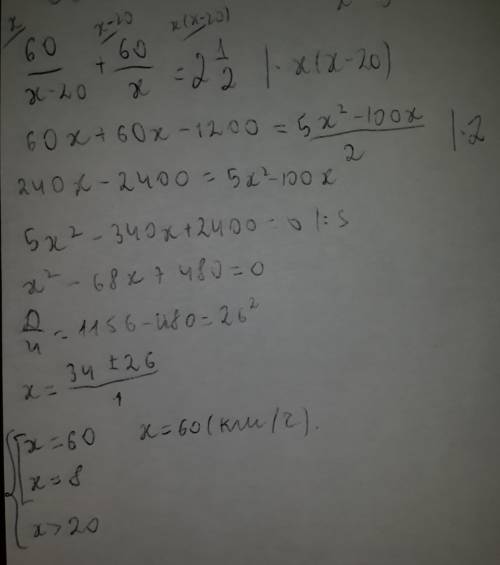 x x-20 x(x-20)
60/(x-20) + 60/x = 2 1/2 | · x(x-20)
60x+60x-1200 = (5x²-100x)/2 | ·2
240x-2400=5x²-100x
5x²-340x+2400=0 |:5
x²-68x+480=0
D/4=1156-480=26²
x=(34±26)/1
x=60 x=60(км/г).
x=8
x>20